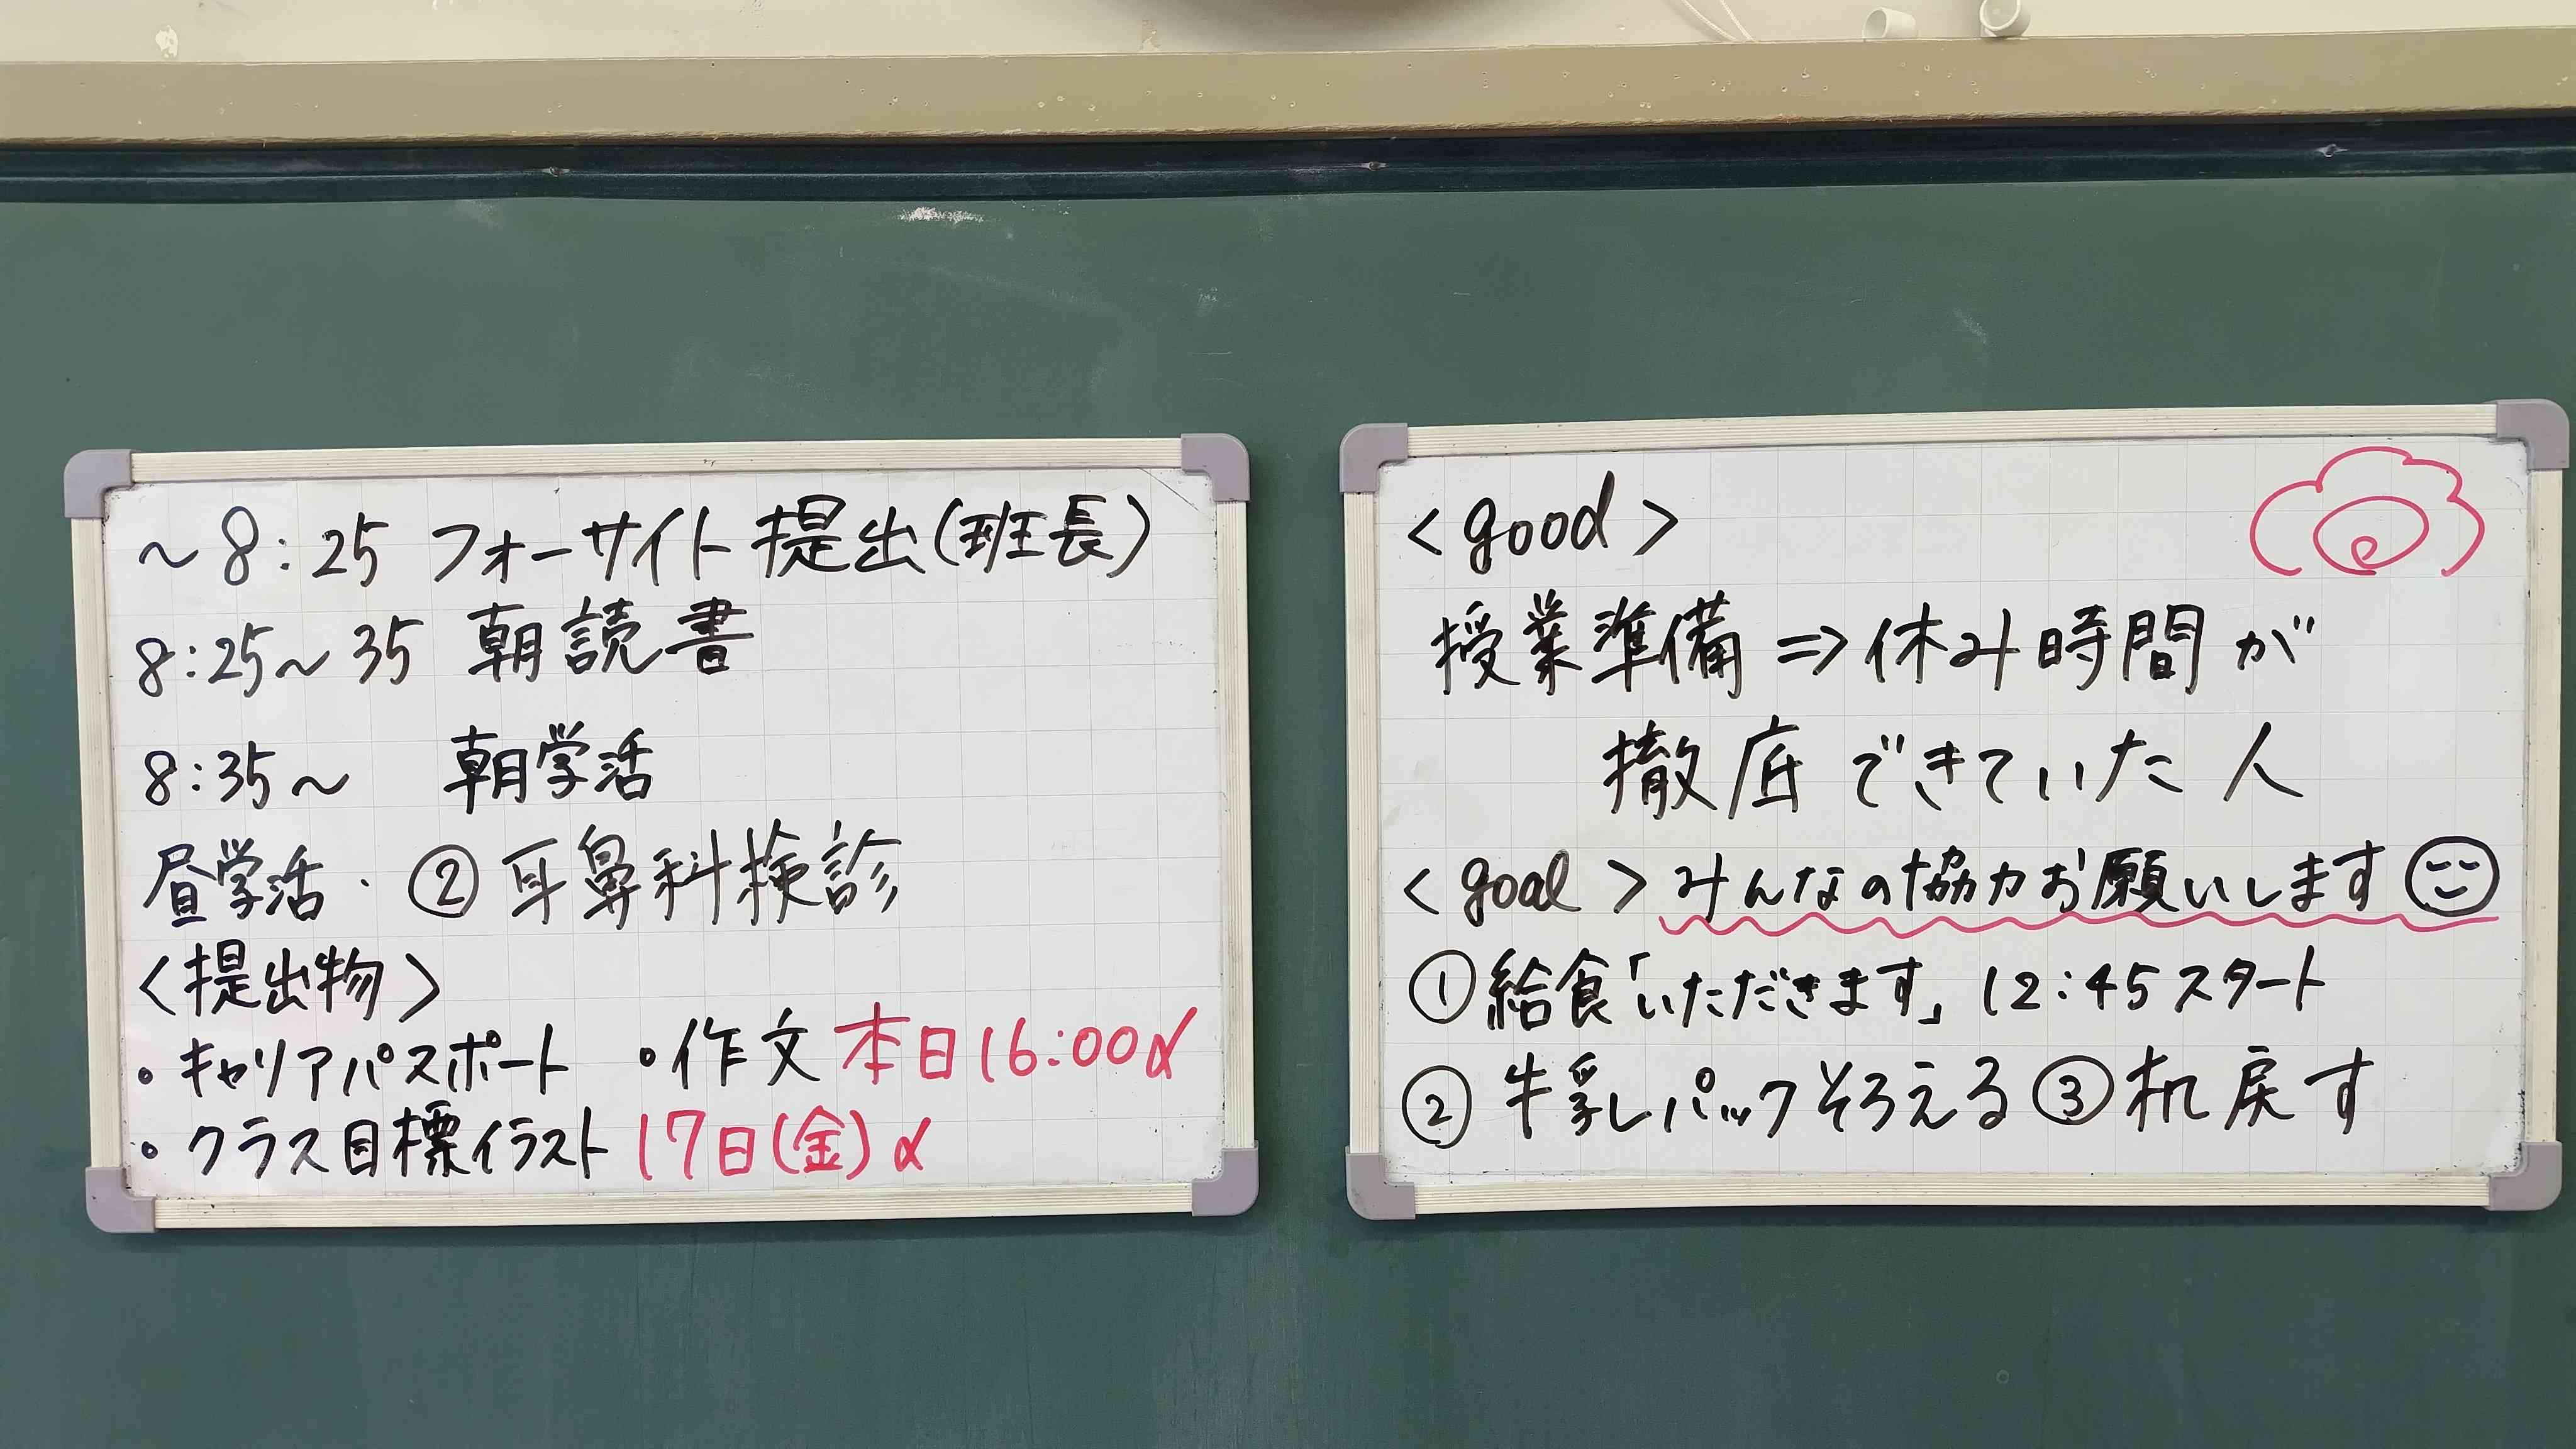 ~8:25 フォーサイト提出(班長)
8:25~35 朝読書
8:35~ 朝学活
昼学活・②耳鼻科検診
<提出物>
・キャリアパスポート ・作文 本日16:00〆
・クラス目標イラスト 17日(金)〆
<good>
授業準備⇒休み時間が
徹底できていた人
<goal>みんなの協力お願いします
①給食「いただきます」12:45スタート
②牛乳パックそろえる③机戻す